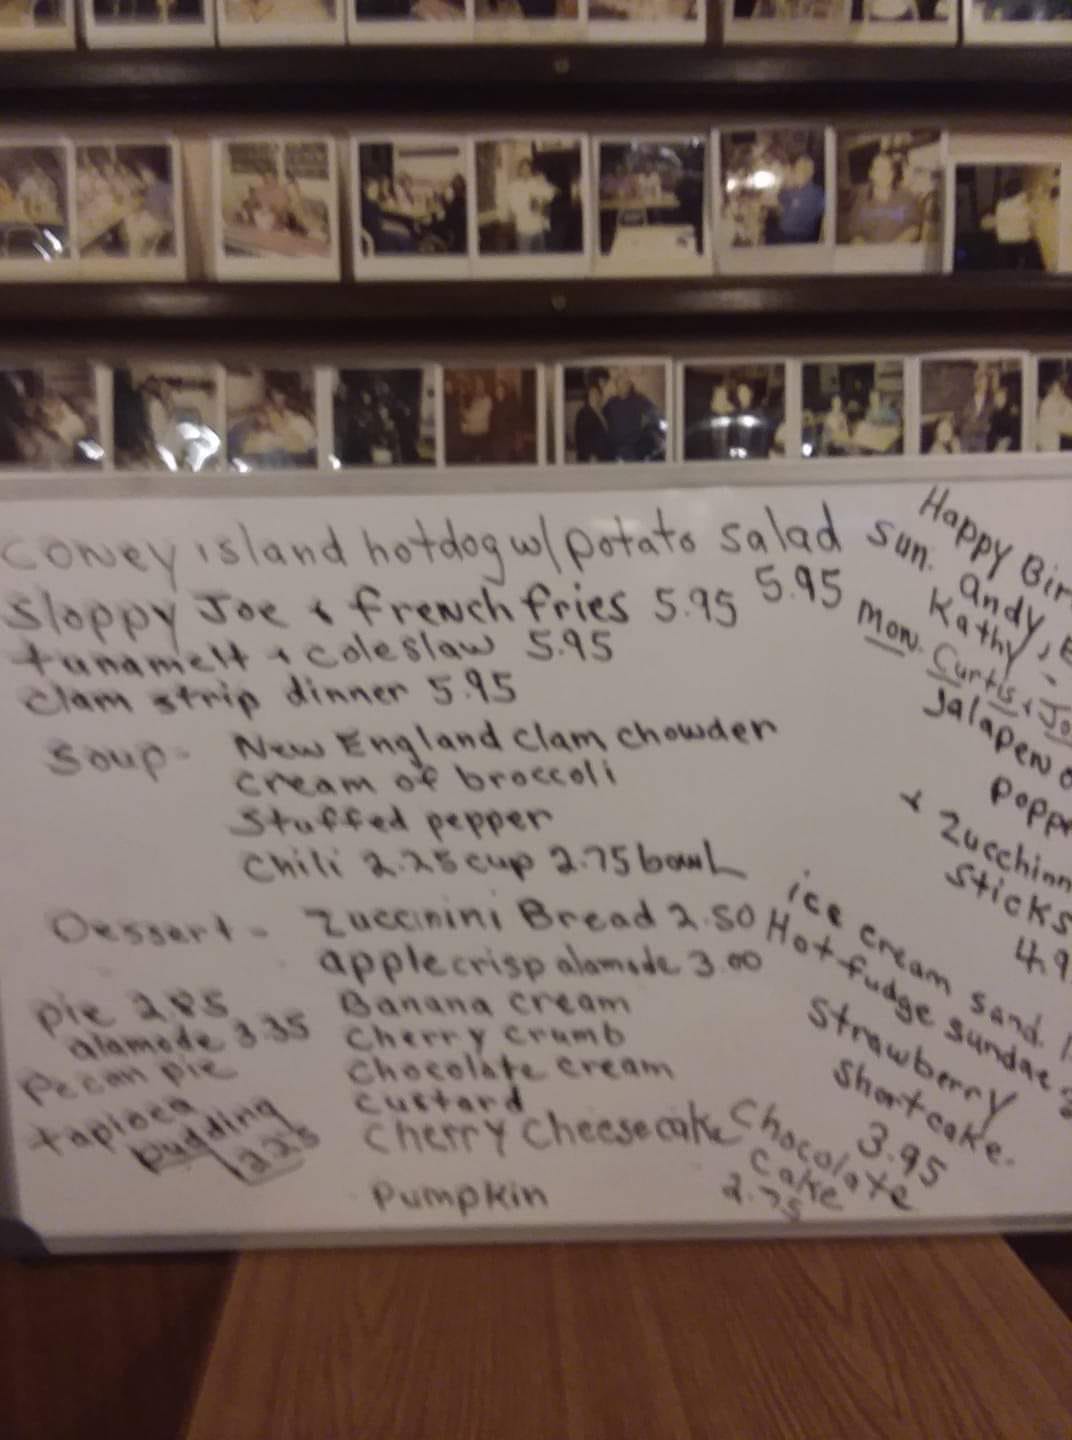 coney island hotdog w/ potato salad
5.95
Sloppy Joe + french fries 5.95
tunamelt + coleslaw 5.95
clam strip dinner 5.95
Soup - New England clam chowder
cream of broccoli
Stuffed pepper
Chili 2.25 cup 2.75 bowl
Dessert - Zuccinini Bread 2.50
apple crisp alamode 3.00
pie 2.85
alamode 3.35
Pecan pie
tapioca
pudding
2.25
Banana cream
Cherry crumb
Chocolate cream
custard
Cherry Cheesecake
Pumpkin
Happy Bir
Sun. Andy,
Kathy,
Mon. Curtis + Jo
Jalapeno
popp
+ Zucchinn
Sticks
4.9
ice cream sand.
Hot fudge sundae
Strawberry
Shortcake.
3.95
Chocolate
Cake
2.75